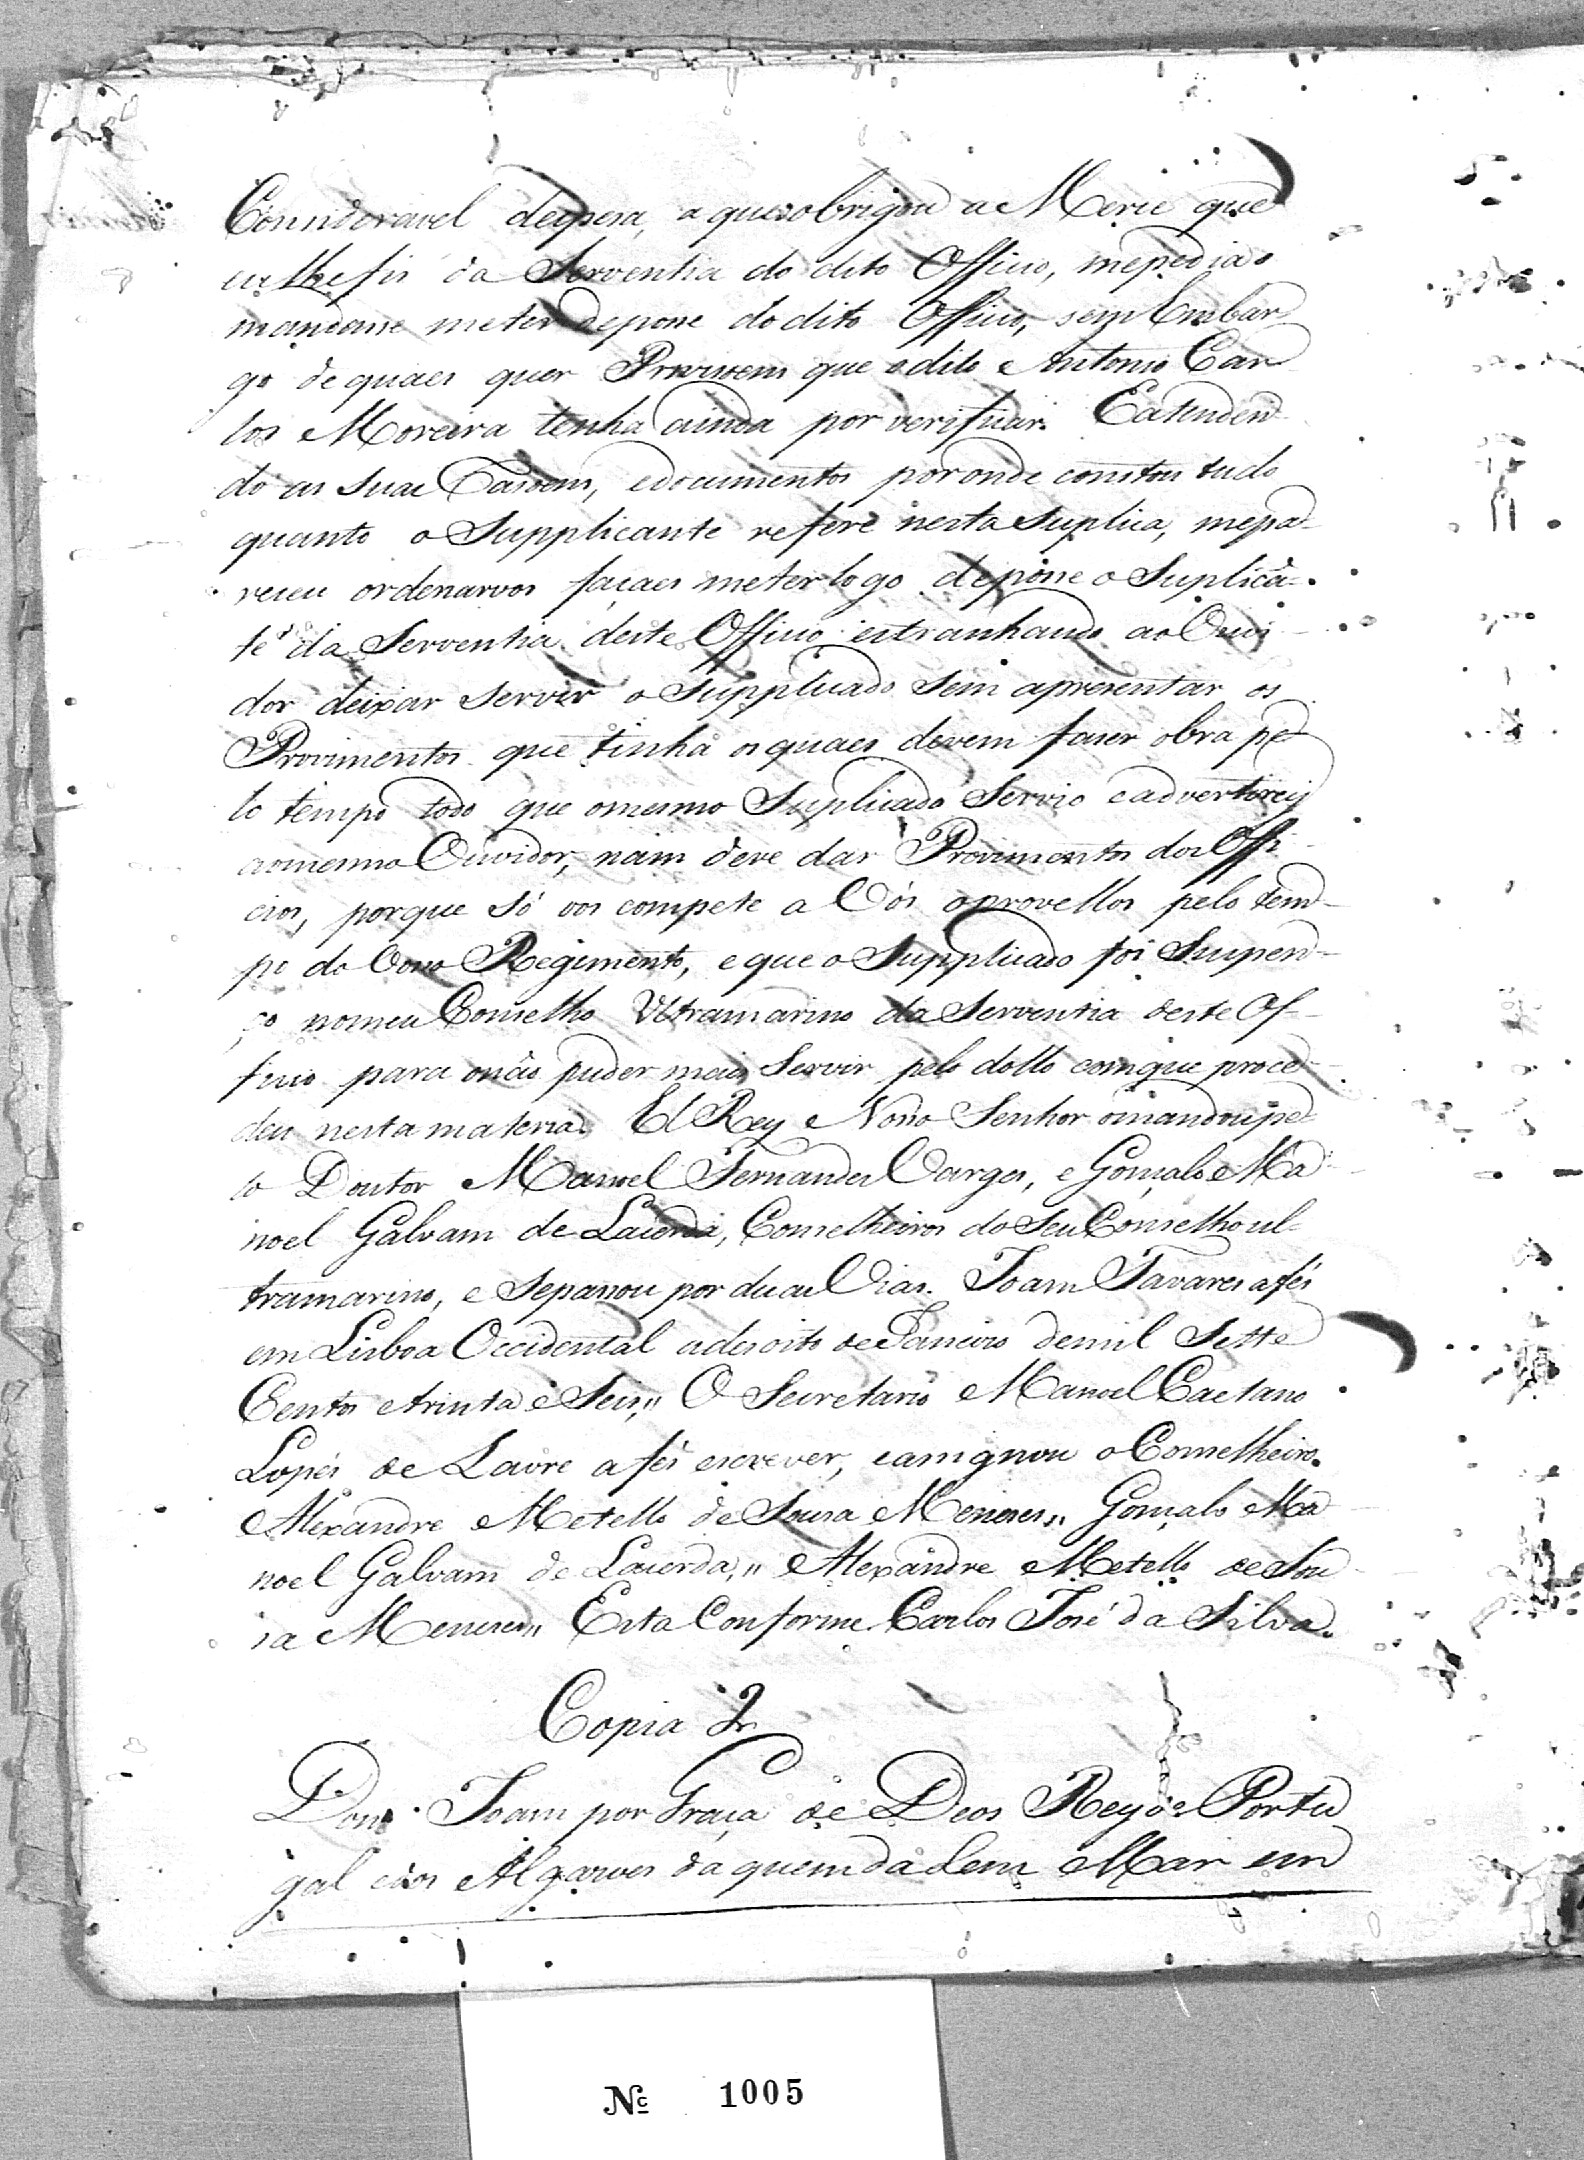 Consideravel despesa, a que o obrigou a Merce que
eu lhe fis da Serventia do dito Officio, me pedia o
mandase meter de posse do dito Officio, sem Embar
go de quaes quer Provisoens que o dito Antonio Car
los Moreira tenha ainda por verificar. E atenden
do as suas Rasoens, e documentos por onde constou tudo
quanto o Supplicante refere nesta suplica, me pa-
receu ordenarvos façaes meter logo de posse o Suplicã-
te da Serventia deste Officio estranhando ao Ouvi
dor deixar servir o Supplicado sem apresentar os
Provimentos que tinha os quaes devem faser obra pe
lo tempo todo que o mesmo Suplicado Servio e advertireis
ao mesmo Ouvidor, nam deve dar Provimentos dos Offi
cios, porque só vos compete a Vós o provellos pelo tem-
po do Vosso Regimento, e que o Supplicado foi Suspen-
ço no meu Conselho Ultramarino da Serventia deste Of-
ficio para o não puder mais Servir pelo dollo com que proce-
deu nesta materia. El Rey Nosso Senhor o mandou pe
lo Doutor Manoel Fernandes Varges, e Gonçalo Ma
noel Galvam de Lacerda, Conselheiros do Seu Conselho ul-
tramarino, e Se passou por duas Vias. Joam Tavares a fés
em Lisboa Occidental a desoito de Janeiro de mil Sette
Centos e trinta e Seis,, O Secretario Manoel Caetano
Lopes de Lavre a fés escrever, e asignou o Conselheiro
Alexandre Metello de Sousa Meneses,, Gonçalo Ma
noel Galvam de Lacerda,, Alexandre Metello de Sou
sa Meneses,, Esta Conforme Carlos José da Silva.
Copia 2
Dom Joam por Graça de Deos Rey de Portu
gal e dos Algarves da quem da Lem Mar em
Nº 1005